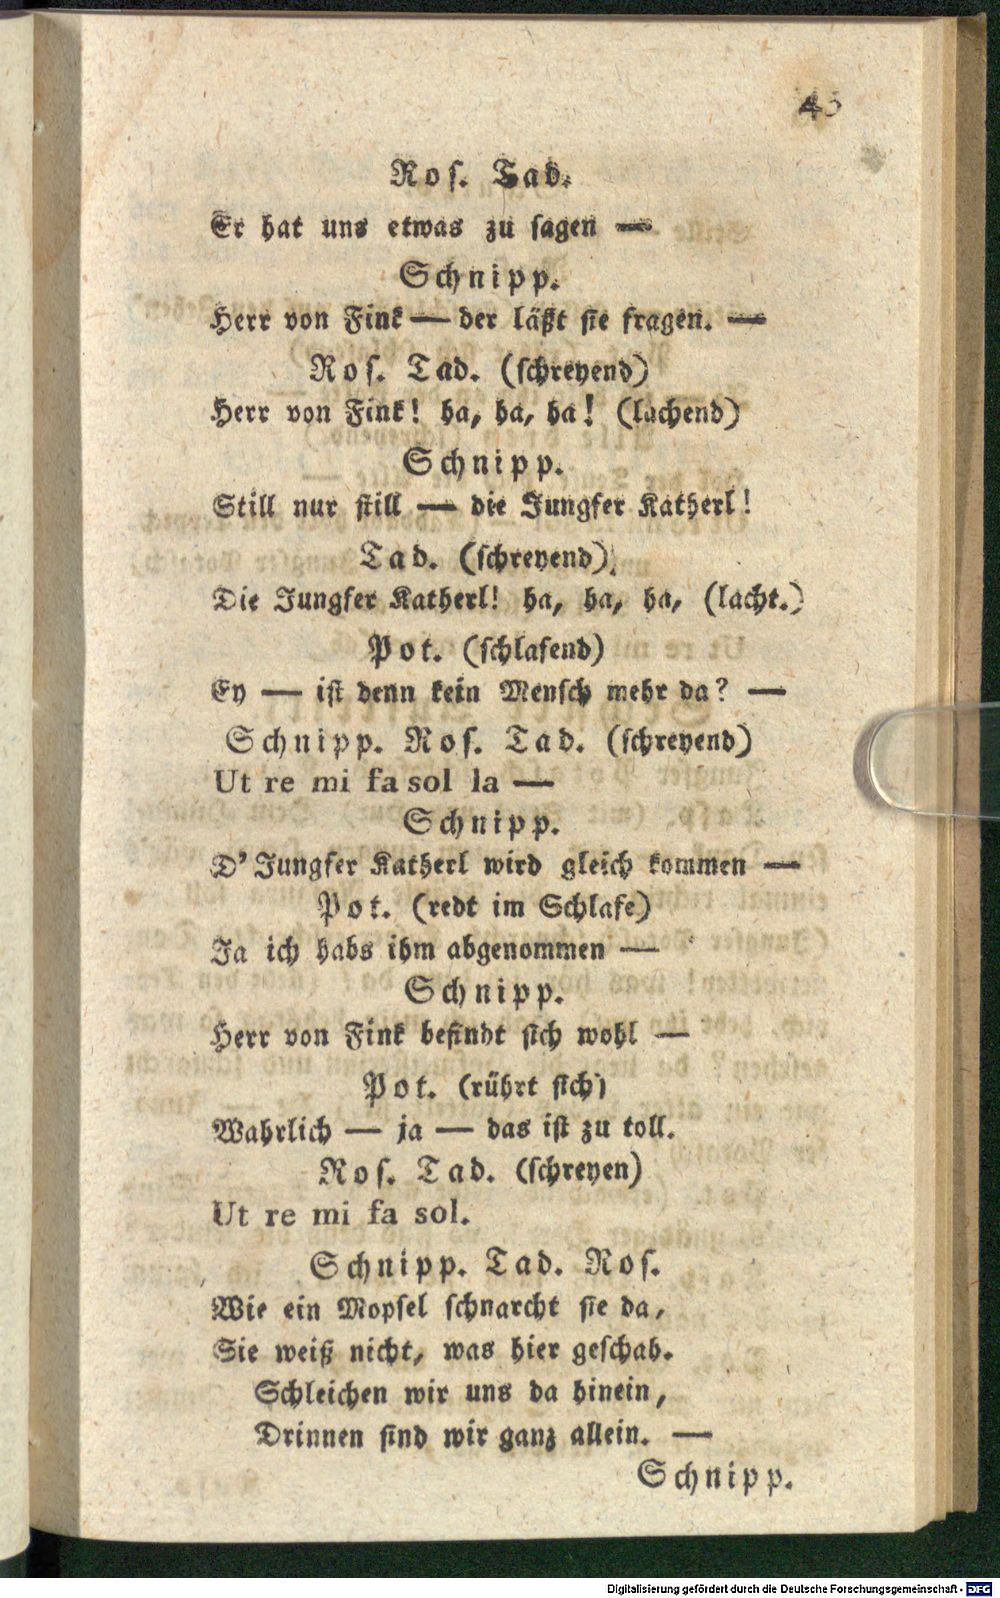 43
Ros. Tad.
Er hat uns etwas zu sagen —
Schnipp.
Herr von Fink — der läßt sie fragen. —
Ros. Tad. (schreyend)
Herr von Fink! ha, ha, ha! (lachend)
Schnipp.
Still nur still — die Jungfer Katherl!
Tad. (schreyend)
Die Jungfer Katherl! ha, ha, ha, (lacht.)
Pot. (schlafend)
Ey — ist denn kein Mensch mehr da? —
Schnipp. Ros. Tad. (schreyend)
Ut re mi fa sol la —
Schnipp.
D' Jungfer Katherl wird gleich kommen —
Pot. (redt im Schlafe)
Ja ich habs ihm abgenommen —
Schnipp.
Herr von Fink befindt sich wohl —
Pot. (rührt sich)
Wahrlich — ja — das ist zu toll.
Ros. Tad. (schreyen)
Ut re mi fa sol.
Schnipp. Tad. Ros.
Wie ein Mopsel schnarcht sie da,
Sie weiß nicht, was hier geschah.
Schleichen wir uns da hinein,
Drinnen sind wir ganz allein. —
Schnipp.
Digitalisierung gefördert durch die Deutsche Forschungsgemeinschaft - DFG